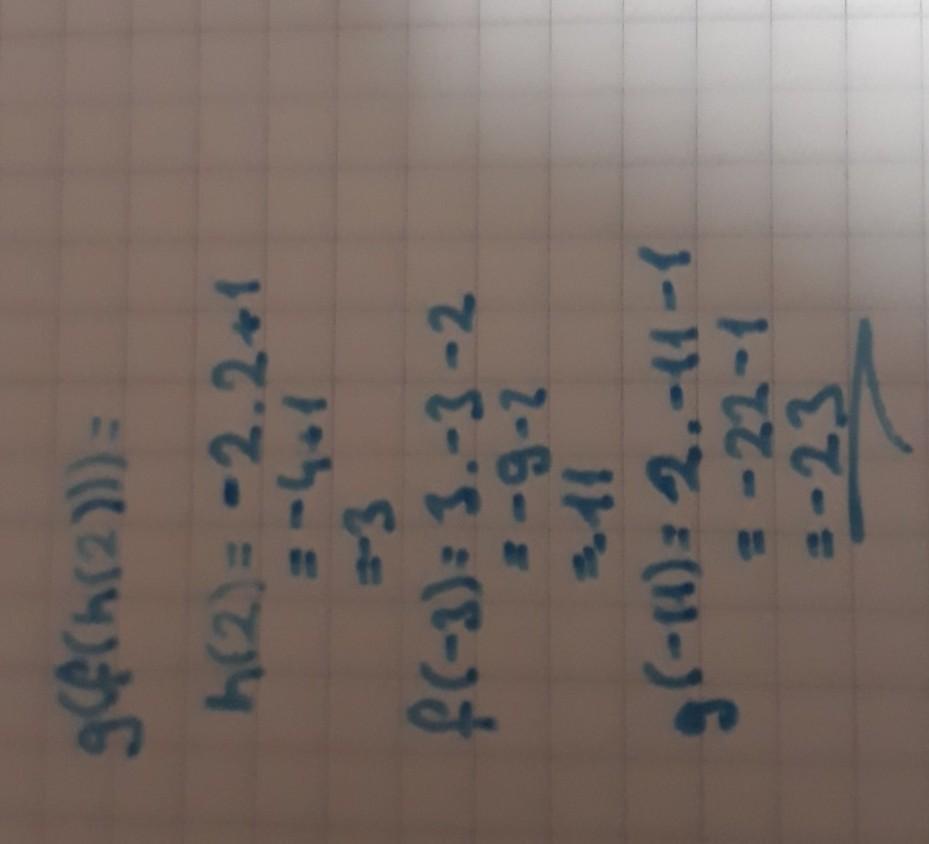 g(f(h(2))) =
h(2) = -2.2+1
= -4+1
=-3
f(-3) = 3.-3-2
= -9-2
=-11
g(-11) = 2.-11-1
= -22-1
= -23